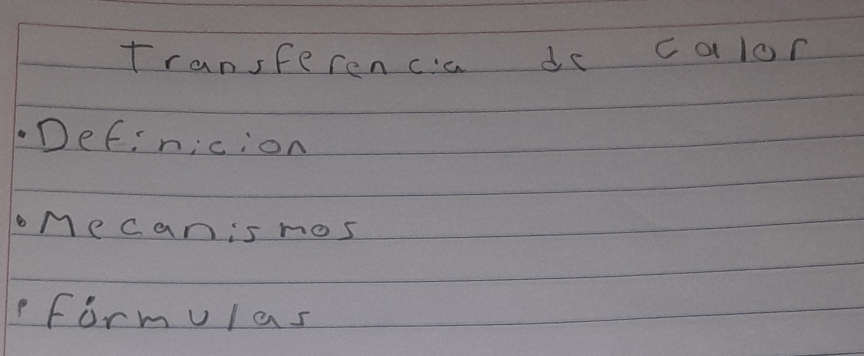 Transferencia de calor
• Definicion
• Mecanismos
• Fórmulas